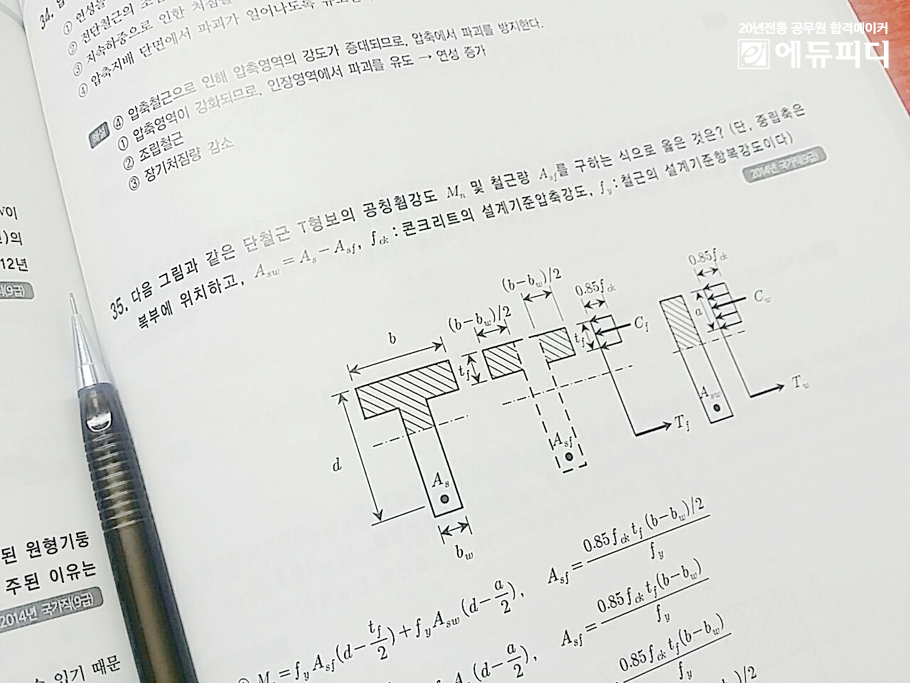 20년전통 공무원 합격메이커
에듀피디
34.
① 연성을
② 전단철근의
③ 지속하중으로 인한 처짐을
④ 압축지배 단면에서 파괴가 일어나도록
해설 ④ 압축철근으로 인해 압축영역의 강도가 증대되므로, 압축에서 파괴를 방지한다.
① 압축영역이 강화되므로, 인장영역에서 파괴를 유도 → 연성 증가
② 조립철근
③ 장기처짐량 감소
35. 다음 그림과 같은 단철근 T형보의 공칭휨강도 M_n 및 철근량 A_sf를 구하는 식으로 옳은 것은? (단, 중립축은
복부에 위치하고, A_sw = A_s − A_sf, f_ck : 콘크리트의 설계기준압축강도, f_y : 철근의 설계기준항복강도이다)
2014년 국가직(9급)
b
(b−b_w)/2
(b−b_w)/2
0.85f_ck
0.85f_ck
t_f
t_f
C_f
a
C_w
d
A_s
A_sf
T_f
A_sw
T_w
b_w
① M_n = f_y A_sf (d − t_f/2) + f_y A_sw (d − a/2), A_sf = 0.85f_ck t_f (b−b_w)/2 / f_y
(d − a/2), A_sf = 0.85f_ck t_f (b−b_w) / f_y
0.85f_ck t_f (b−b_w) / f_y
12년
된 원형기둥
주된 이유는
2014년 국가직(9급)
있기 때문